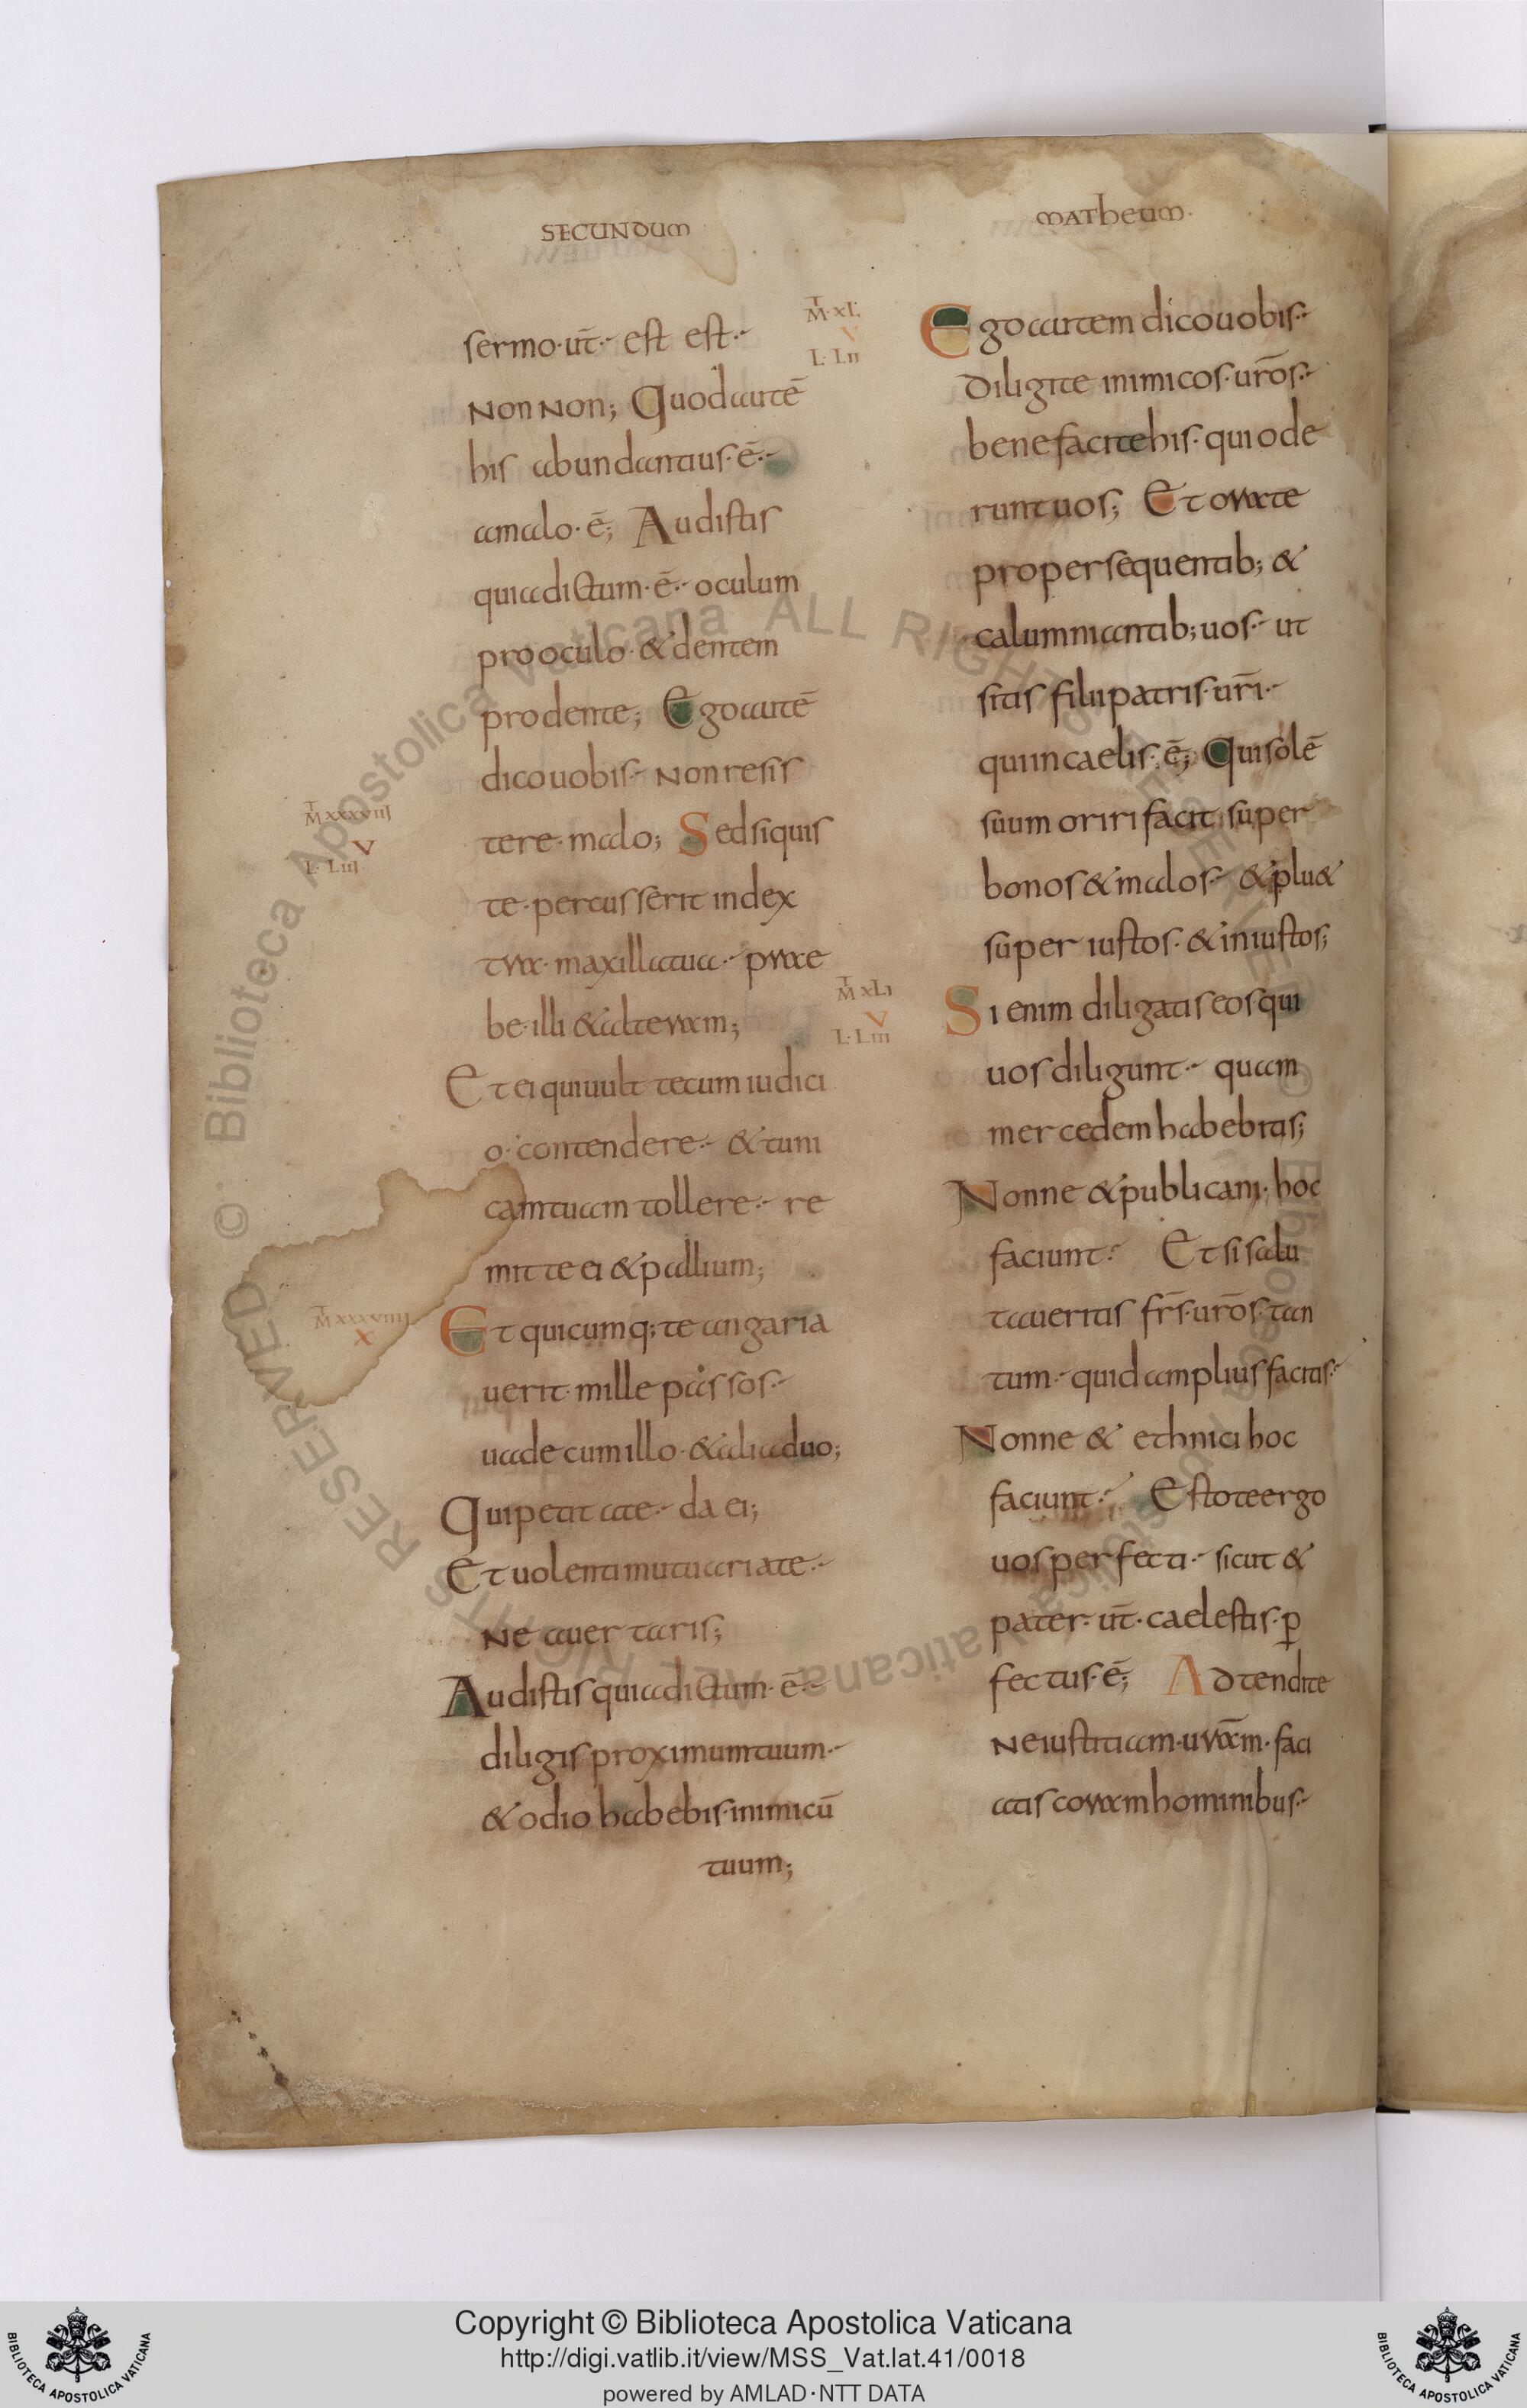 SECUNDUM
MATHEUM·
sermo·ur̄·- est est·-
NON NON; Quod autē
his abundantius·ē·-
amalo·ē; Audistis
quia dictum·ē·- oculum
pro oculo·& dentem
pro dente; Ego autē
dico uobis·- Non resis
tere·malo; Sed siquis
te·percusserit in dex
tra·maxilla tua·- prae
be·illi & alteram;
Et ei qui uult tecum iudici
o·contendere·- & tuni
cam tuam tollere·- re
mitte ei & pallium;
Et quicumq; te angaria
uerit·mille passos·-
uade cum illo·& alia duo;
Qui petit a te·- da ei;
Et uolenti mutuari a te·-
Ne auertaris;
Audistis quia dictum·ē·-
diligis proximum tuum·-
& odio habebis·inimicū
tuum;
T
M XXXVIIJ
V
L·LIIJ
T
M XXXVIIIJ
X
T
M·XL·
V
L·LII
T
M XLI
V
L·LIII
Ego autem dico uobis·-
Diligite inimicos·ur̄os·-
benefacite his·qui ode
runt uos; Et orate
pro persequentib; &
calumniantib; uos·- ut
sitis filii patris·ur̄i·-
qui in caelis·ē; Qui solē
suum oriri facit super
bonos & malos·- & plu&
super iustos·& iniustos;
Si enim diligatis eos qui
uos diligunt·- quam
mercedem habebitis;
Nonne & publicani·hoc
faciunt·- Et si salu
taueritis fr̄s·ur̄os·tan
tum·- quid amplius facitis·-
Nonne & ethnici hoc
faciunt·- Estote ergo
uos perfecti·- sicut &
pater·ur̄·caelestis·p̱
fectus·ē; Adtendite
Ne iustitiam·ur̄am·faci
atis coram hominibus·-
© Biblioteca Apostolica Vaticana ALL RIGHTS RESERVED
Copyright © Biblioteca Apostolica Vaticana
http://digi.vatlib.it/view/MSS_Vat.lat.41/0018
powered by AMLAD·NTT DATA
BIBLIOTECA APOSTOLICA VATICANA
BIBLIOTECA APOSTOLICA VATICANA